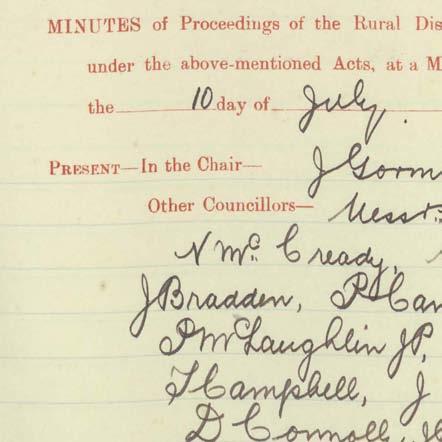 MINUTES of Proceedings of the Rural Dis
under the above-mentioned Acts, at a M
the 10 day of July.
PRESENT—In the Chair— J Gorm
Other Councillors— Messrs
N McCready,
J Bradden, P
P McLaughlin JP,
T Campbell, J
D Connolly,